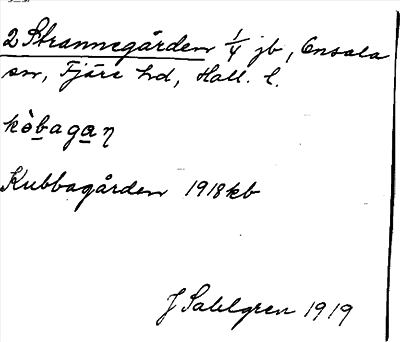 2 Strannegården 1/4 jb, Onsala
sn, Fjäre hd, Hall. l.
kòbagaŋ
Kubbagården 1918 kb
J Sahlgren 1919